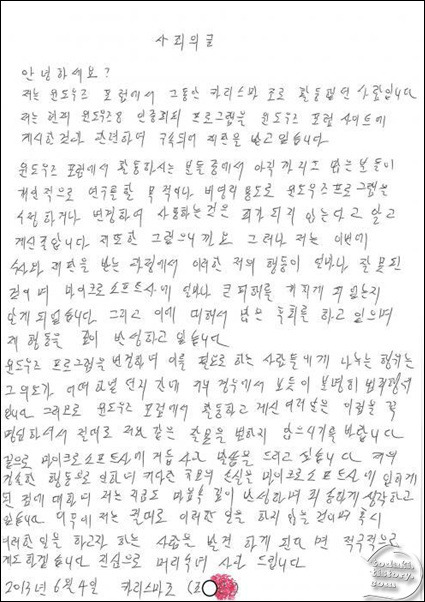 사죄의글
안녕하세요?
저는 윈도우즈 포럼에서 그동안 카리스마 조로 활동했던 사람입니다
저는 현재 윈도우8 인증회피 프로그램을 윈도우즈 포럼 사이트에
게시한것과 관련하여 구속되어 재판을 받고 있습니다.
윈도우즈 포럼에서 활동하시는 분들중에서 아직까지도 많은 분들이
개인적으로 연구를 할 목적이나 비영리 용도로 윈도우즈프로그램을
수정하거나 변경하여 사용하는것은 죄가 되지 않는다고 알고
계신줄 압니다. 저또한 그랬으니까요. 그러나 저는 이번에
수사와 재판을 받는 과정에서 이러한 저의 행동이 얼마나 잘못된
것이며 마이크로소프트사에 얼마나 큰피해를 끼치게 되었는지
알게 되었습니다. 그리고 이에 대해서 많은 후회를 하고 있으며
제 행동을 깊이 반성하고 있습니다.
윈도우즈 프로그램을 변경하여 이를 필요로 하는 사람들에게 나누는 행위는
그 의도가 어떠하였던지 간에 저의 경우에서 보듯이 분명히 범죄행위
입니다. 그러므로 윈도우즈 포럼에서 활동하고 계신 여러분은 이점을 꼭
명심하셔서 절대로 저와 같은 잘못을 범하지 않으시기를 바랍니다.
끝으로 마이크로소프트사에 거듭 사과 말씀을 드리고 싶습니다. 저의
경솔한 행동으로 인하여 커다란 유무형의 손실을 마이크로소프트사에 입히게
된 점에 대하여 저는 지금도 마음속 깊이 반성하며 죄송하게 생각하고
있습니다. 이후에 저는 절대로 이러한 일을 하지 않을것이며 혹시
이러한 일을 하고자 하는 사람을 발견하게 된다면 적극적으로
계도하겠습니다. 진심으로 머리숙여 사과 드립니다.
2013년 6월 4일 카리스마조로
sodaki
history.
com